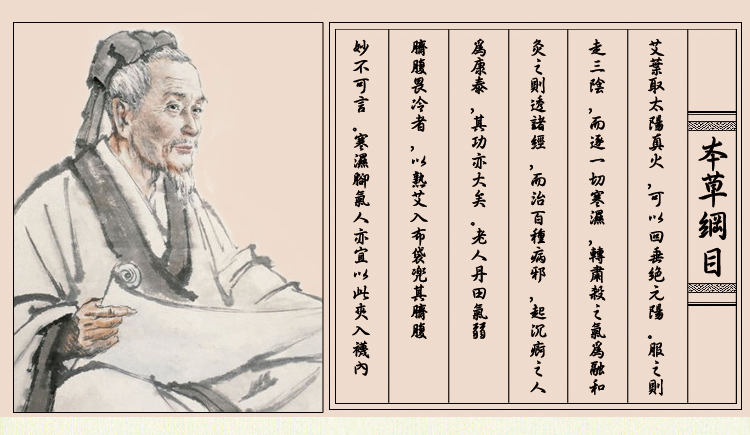 本草綱目
艾葉取太陽真火，可以回垂絶元陽。服之則
走三陰，而逐一切寒濕，轉肅殺之氣爲融和
灸之則透諸經，而治百種病邪，起沉痾之人
爲康泰，其功亦大矣。老人丹田氣弱
臍腹畏冷者，以熟艾入布袋兜其臍腹
妙不可言。寒濕腳氣人亦宜以此夾入襪內